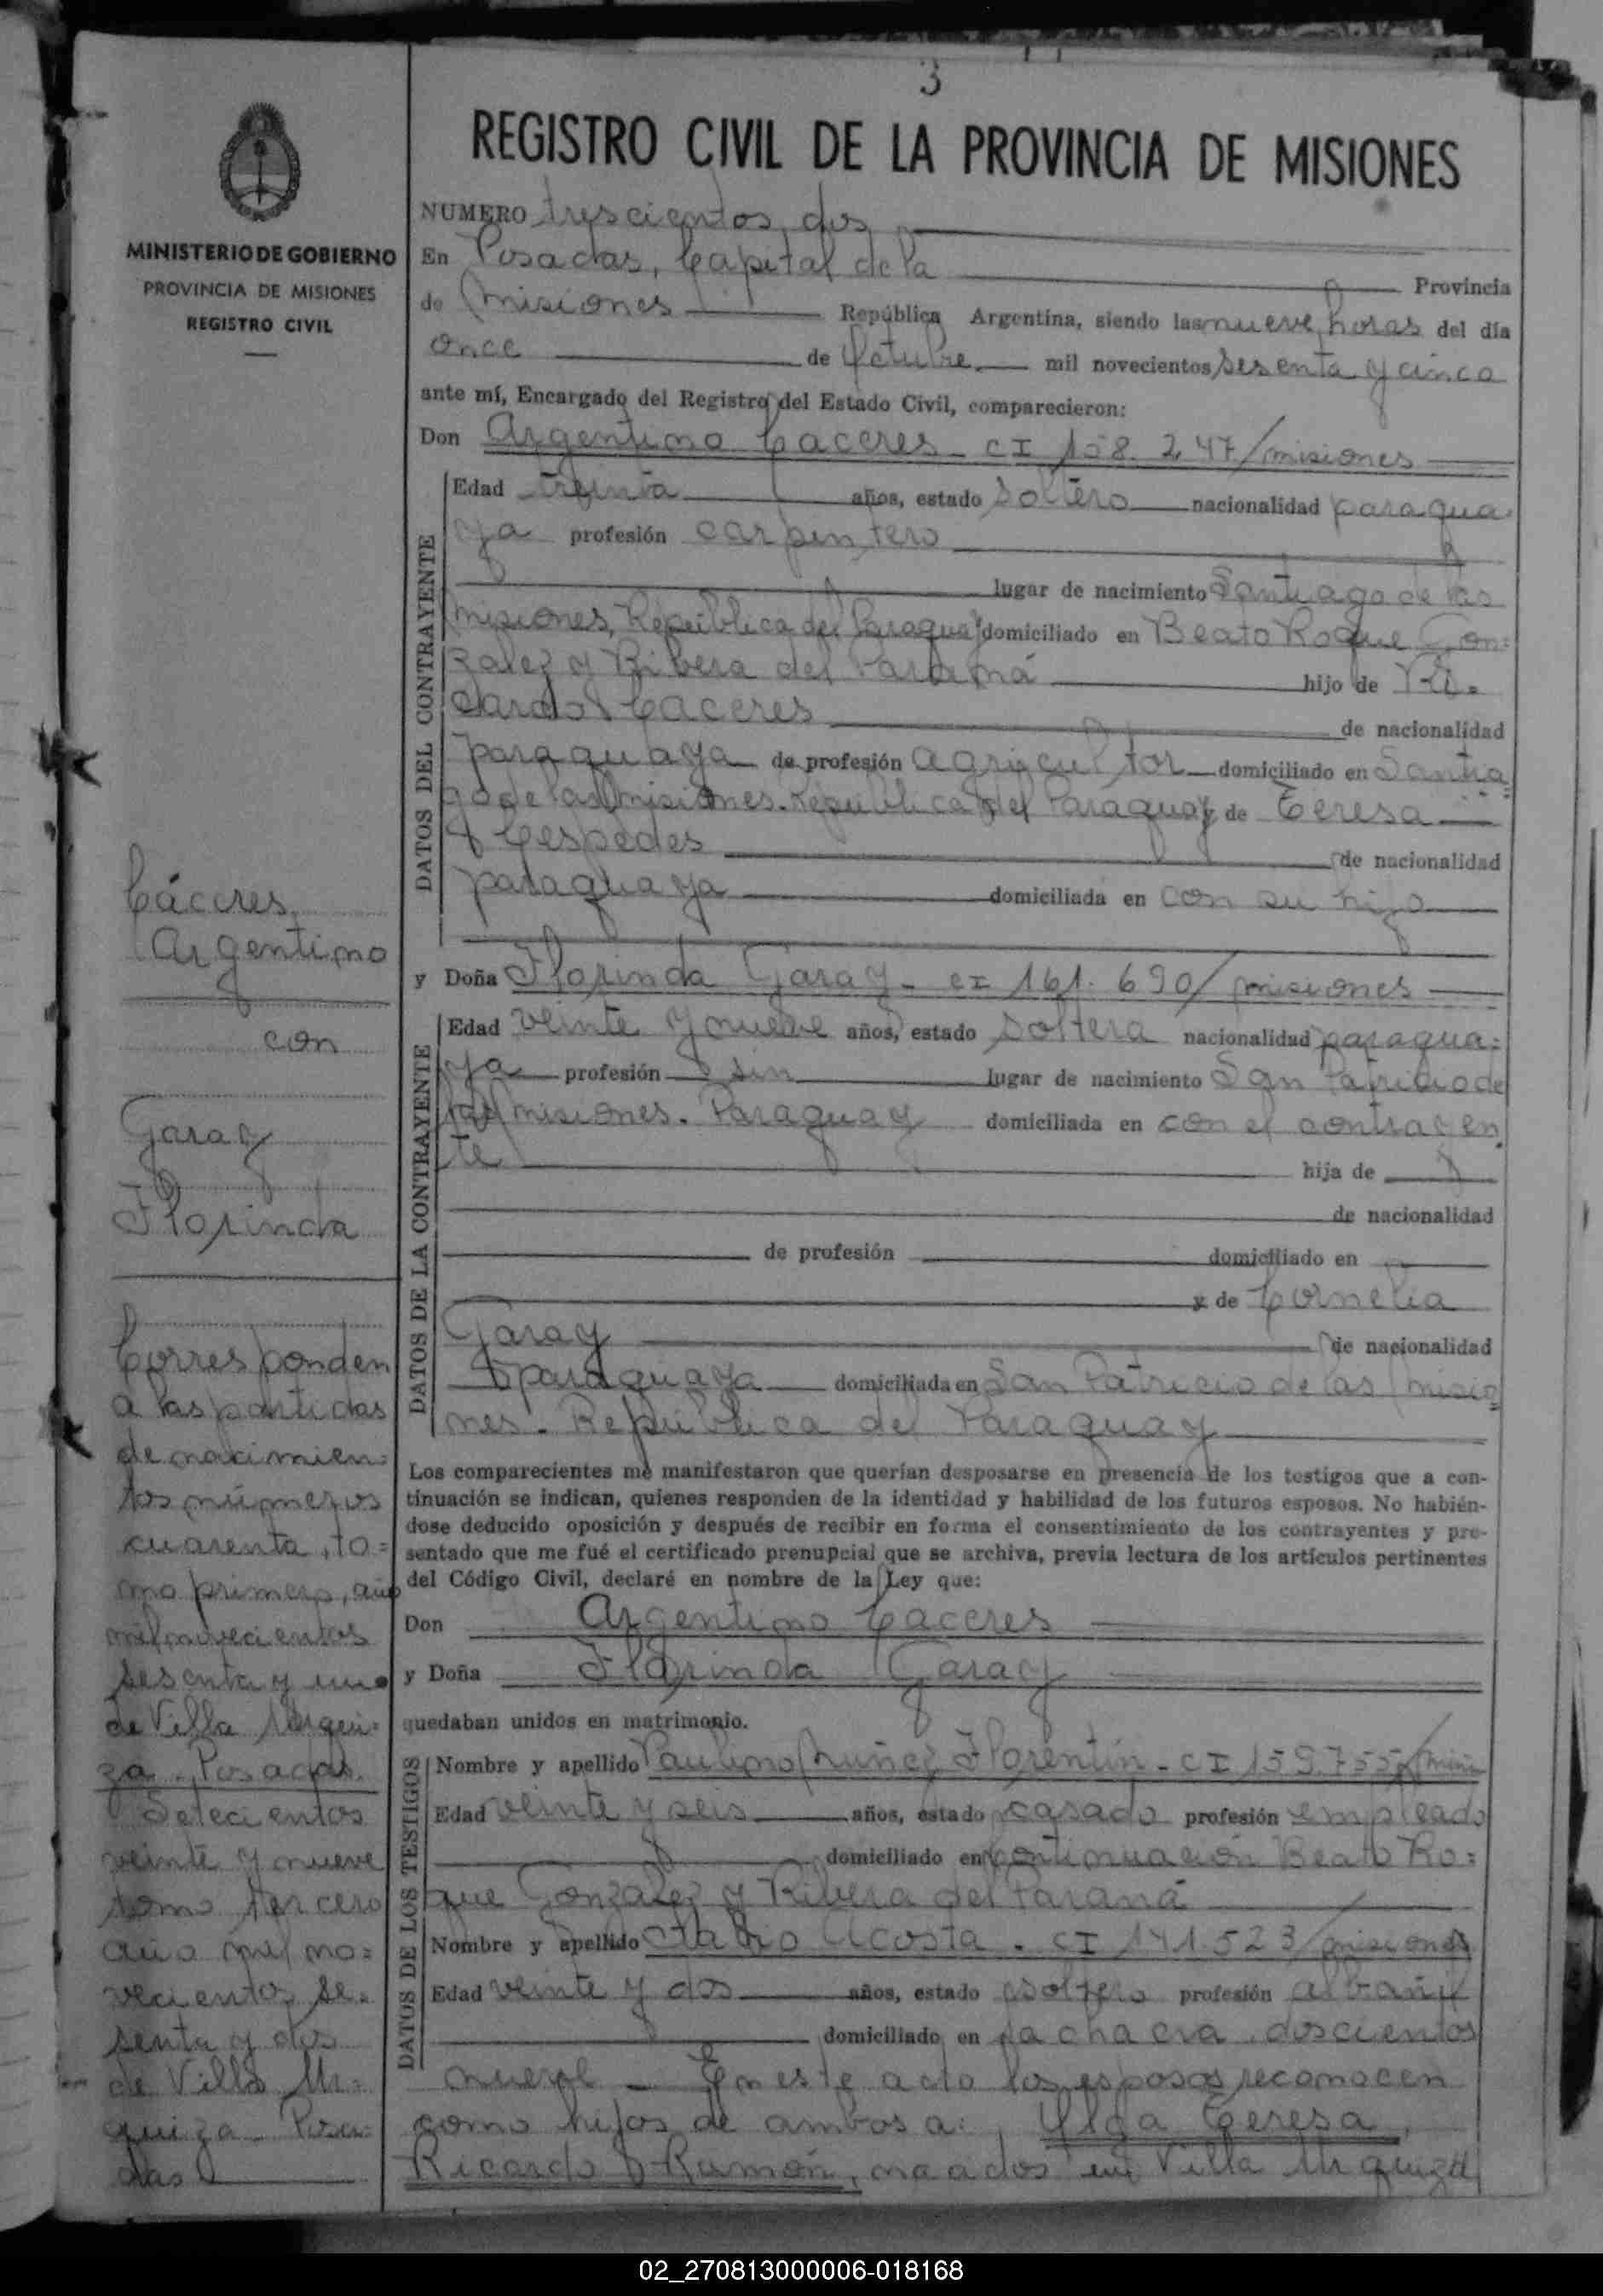 3
REGISTRO CIVIL DE LA PROVINCIA DE MISIONES
MINISTERIO DE GOBIERNO
PROVINCIA DE MISIONES
REGISTRO CIVIL
NUMERO trescientos dos
En Posadas, Capital de la Provincia
de Misiones República Argentina, siendo las nueve horas del día
once de Octubre mil novecientos sesenta y cinco
ante mí, Encargado del Registro del Estado Civil, comparecieron:
Don Argentino Caceres - CI 158.247/misiones
DATOS DEL CONTRAYENTE
Edad treinta años, estado soltero nacionalidad paragua
ya profesión carpintero
lugar de nacimiento Santiago de las
Misiones, República del Paraguay domiciliado en Beato Roque Gon=
zalez y Ribera del Paraná hijo de Ri=
cardo Caceres de nacionalidad
paraguaya de profesión agricultor domiciliado en Santia=
go de las Misiones. República del Paraguay y de Teresa
Cespedes de nacionalidad
paraguaya domiciliada en con su hijo
y Doña Florinda Garay - CI 161.690/misiones
DATOS DE LA CONTRAYENTE
Edad veinte y nueve años, estado soltera nacionalidad paragua=
ya profesión sin lugar de nacimiento San Patricio de
las Misiones. Paraguay domiciliada en con el contrayen
te hija de
de nacionalidad
de profesión domiciliado en
y de Cornelia
Garay de nacionalidad
paraguaya domiciliada en San Patricio de las Misio=
nes. República del Paraguay
Los comparecientes me manifestaron que querían desposarse en presencia de los testigos que a con-
tinuación se indican, quienes responden de la identidad y habilidad de los futuros esposos. No habién-
dose deducido oposición y después de recibir en forma el consentimiento de los contrayentes y pre-
sentado que me fué el certificado prenupcial que se archiva, previa lectura de los artículos pertinentes
del Código Civil, declaré en nombre de la Ley que:
Don Argentino Caceres
y Doña Florinda Garay
quedaban unidos en matrimonio.
DATOS DE LOS TESTIGOS
Nombre y apellido Paulino Nuñez Florentín - CI 159.755/
Edad veinte y seis años, estado casado profesión empleado
domiciliado en continuación Beato Ro=
que Gonzalez y Ribera del Paraná
Nombre y apellido Acosta - CI 141.523/misiones
Edad veinte y dos años, estado soltero profesión albañil
domiciliado en la chacra doscientos
nueve - En este acto los esposos reconocen
como hijos de ambos a: Ylda Teresa,
Ricardo Ramón, nacidos en Villa Urquiza
Cáceres,
Argentino
con
Garay
Florinda
Corresponden
a las partidas
de nacimien=
tos números
cuarenta, to=
mo primero, año
mil novecientos
sesenta y uno
de Villa Urqui=
za. Posadas.
Setecientos
veinte y nueve
tomo tercero
año mil no=
vecientos se=
senta y dos
de Villa Ur=
quiza. Posa=
das
02_270813000006-018168